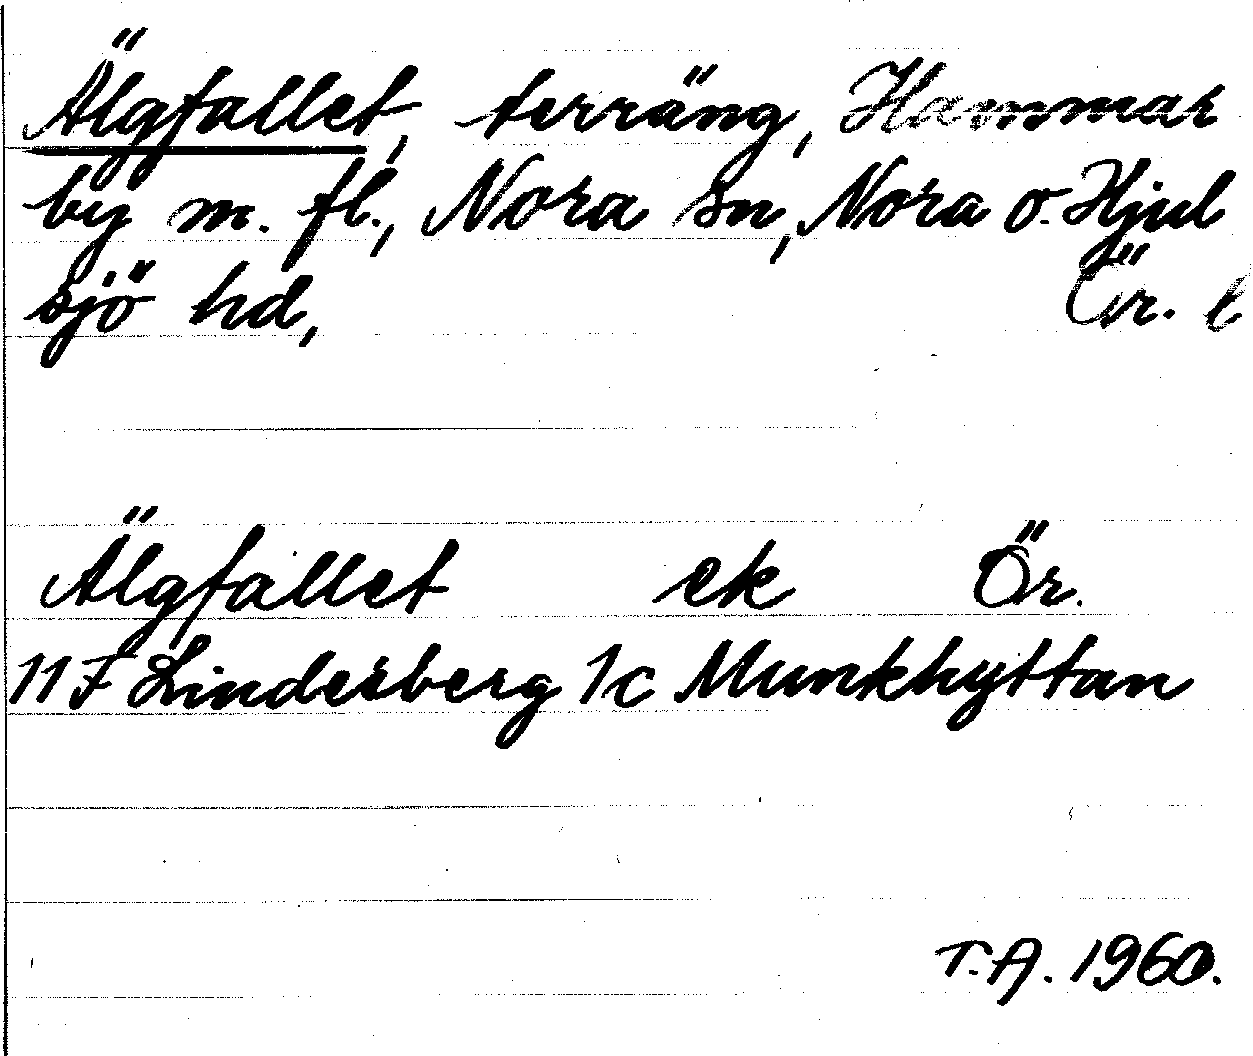 Älgfallet, terräng, Hammar
by m. fl., Nora sn, Nora o. Hjul
sjö hd, Ör. l
Älgfallet ek Ör.
11 F Lindesberg 1c Munkhyttan
T.A. 1960.